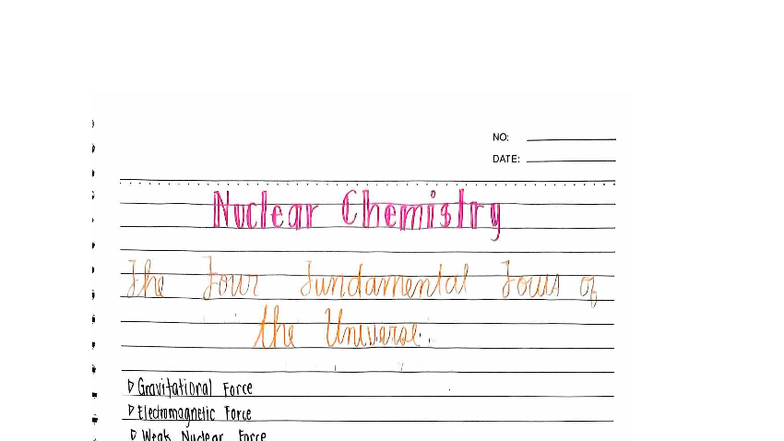 NO:
DATE:
Nuclear Chemistry
The Four Fundamental Forces of
the Universe.
▷ Gravitational Force
▷ Electromagnetic Force
▷ Weak Nuclear Force